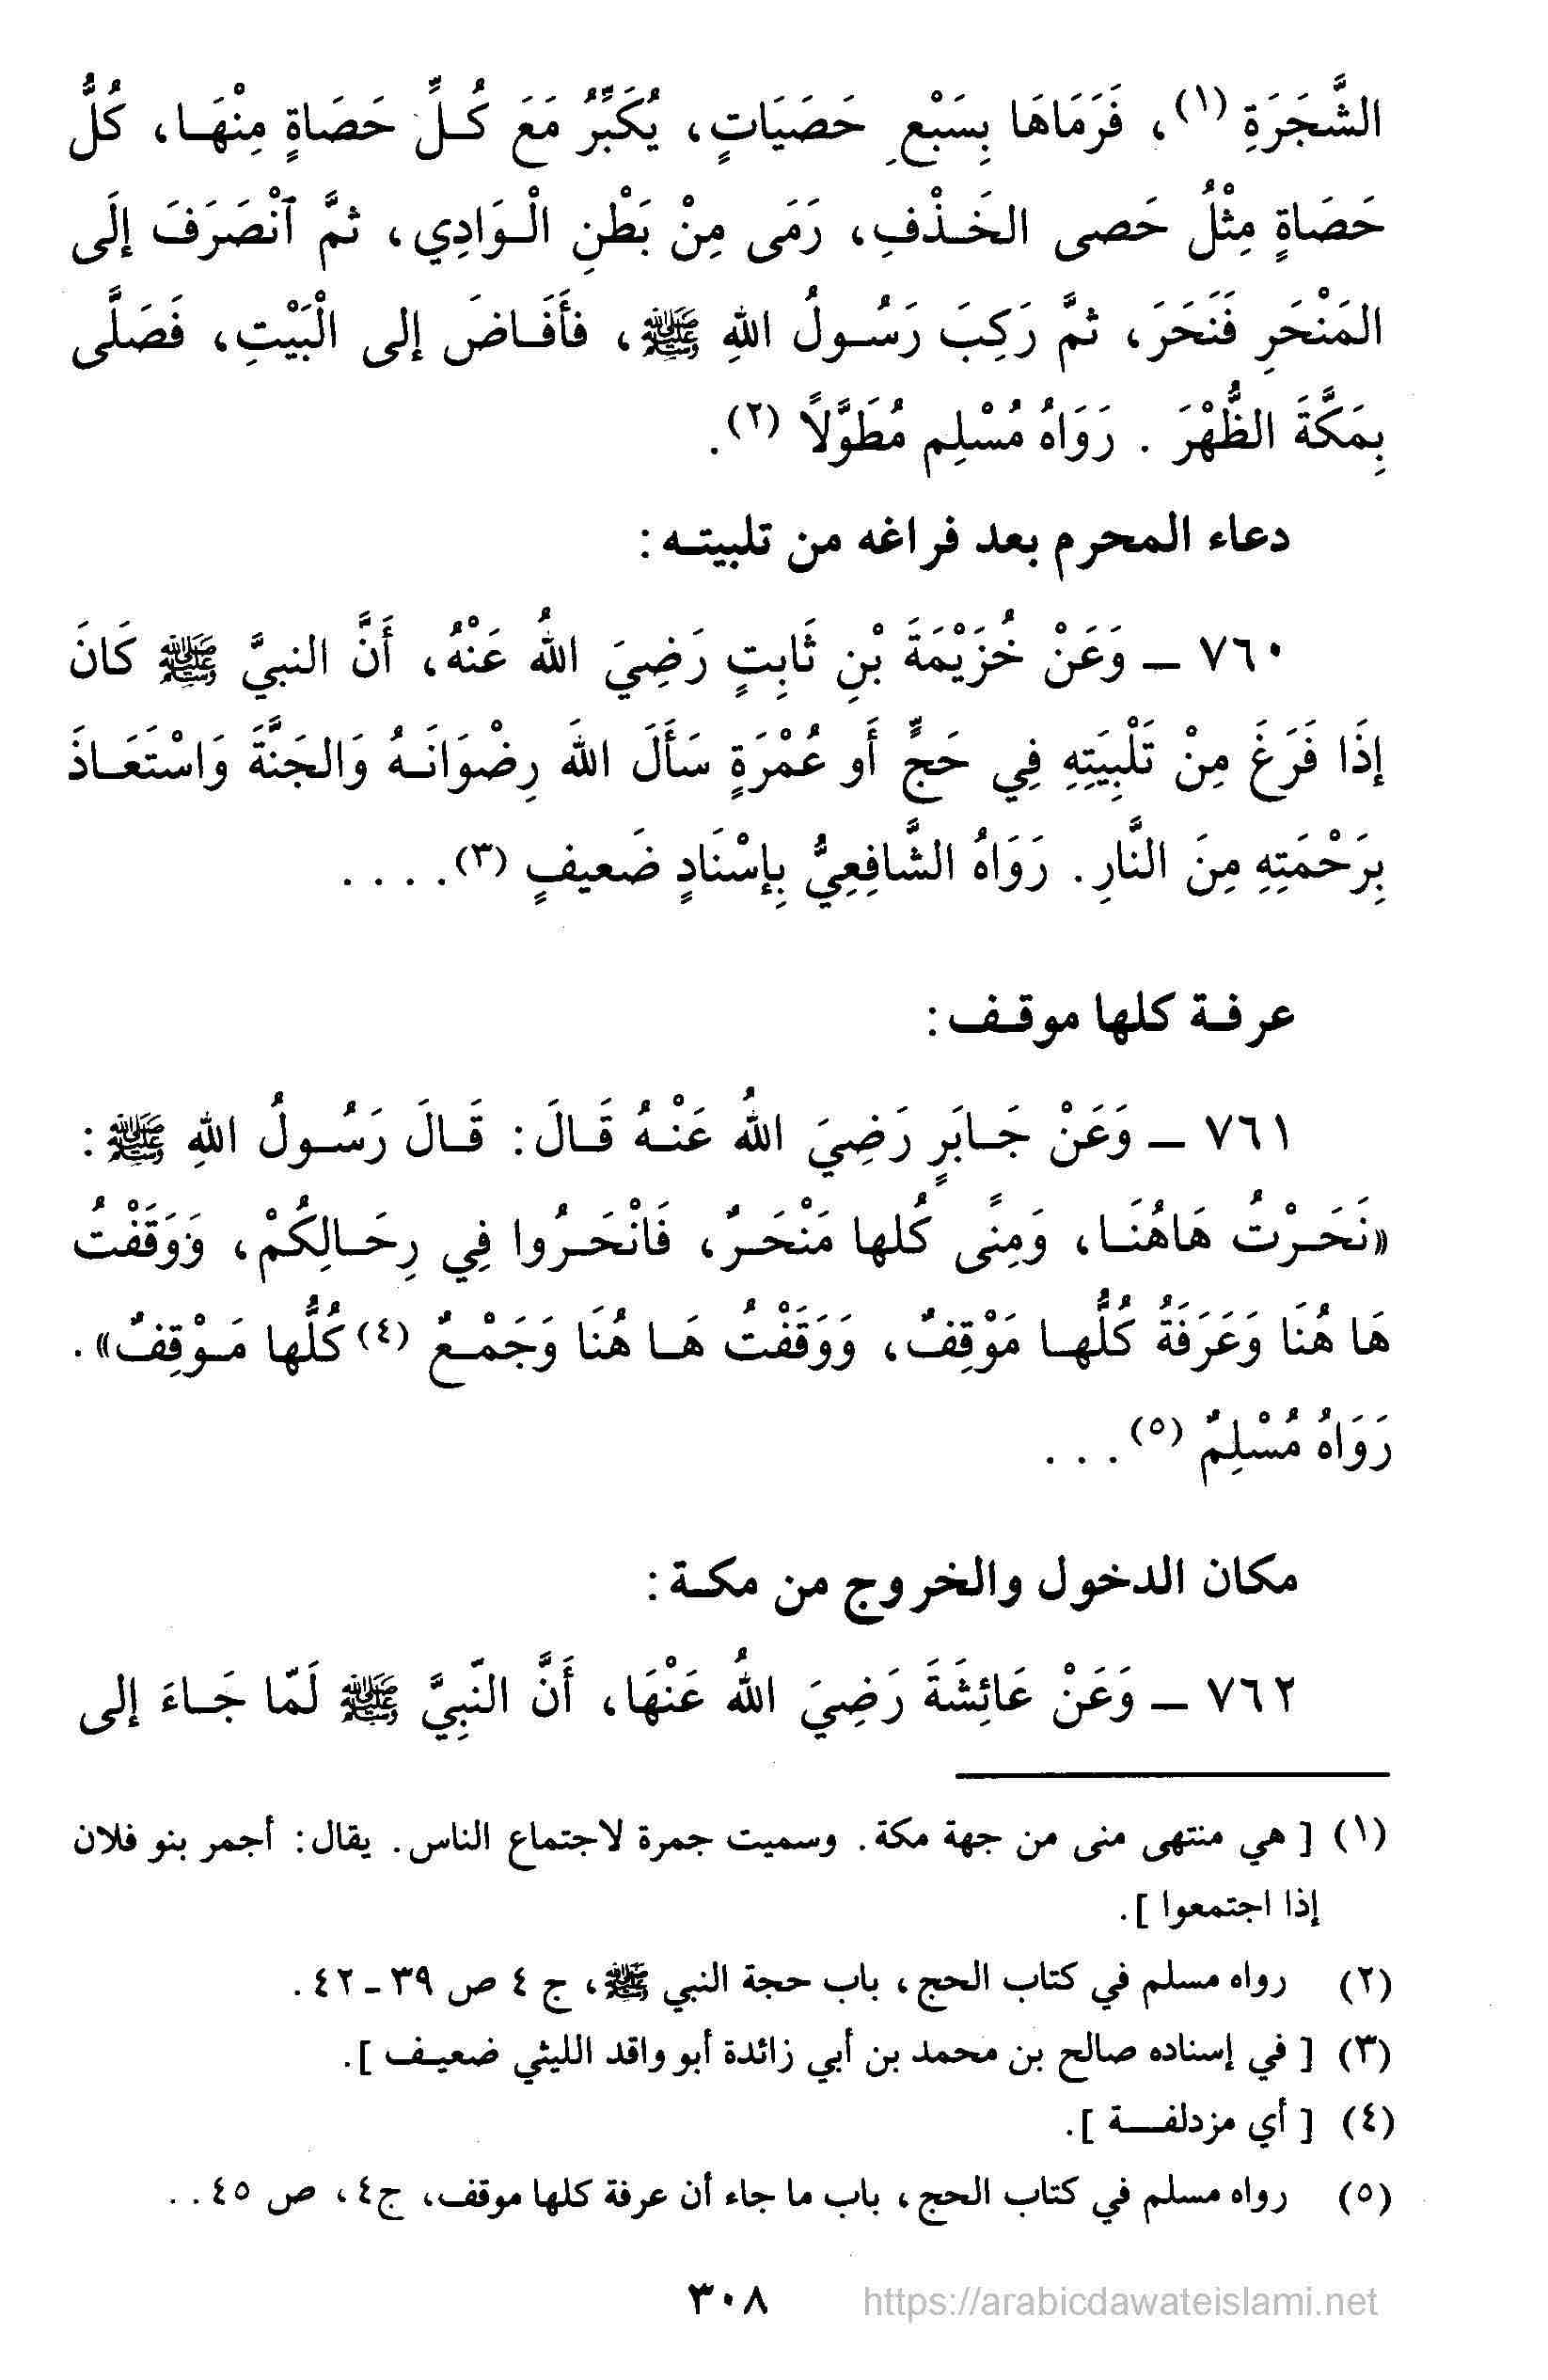 الشَّجَرَةِ (١)، فَرَمَاهَا بِسَبْعِ حَصَيَاتٍ، يُكَبِّرُ مَعَ كُلِّ حَصَاةٍ مِنْهَا، كُلُّ
حَصَاةٍ مِثْلُ حَصى الخَذْفِ، رَمَى مِنْ بَطْنِ الْوَادِي، ثمَّ ٱنْصَرَفَ إلَى
المَنْحَرِ فَنَحَرَ، ثمَّ رَكِبَ رَسُولُ اللهِ ﷺ، فأَفَاضَ إلى الْبَيْتِ، فَصَلَّى
بِمَكَّةَ الظُّهْرَ . رَوَاهُ مُسْلِم مُطَوَّلاً (٢).
دعاء المحرم بعد فراغه من تلبيته :
٧٦٠ ـ وَعَنْ خُزَيْمَةَ بْنِ ثَابِتٍ رَضِيَ اللهُ عَنْهُ، أَنَّ النبيَّ ﷺ كَانَ
إذَا فَرَغَ مِنْ تَلْبِيَتِهِ فِي حَجٍّ أَو عُمْرَةٍ سَأَلَ اللهَ رِضْوَانَهُ وَالجَنَّةَ وَاسْتَعَاذَ
بِرَحْمَتِهِ مِنَ النَّارِ. رَوَاهُ الشَّافِعِيُّ بِإسْنَادٍ ضَعيفٍ (٣). . . .
عرفة كلها موقف :
٧٦١ ـ وَعَنْ جَابَرٍ رَضِيَ اللهُ عَنْهُ قَالَ : قَالَ رَسُولُ اللهِ ﷺ :
«نَحَرْتُ هَاهُنَا، وَمِنًى كُلها مَنْحَرٌ، فَانْحَرُوا فِي رِحَالِكُمْ، وَوَقَفْتُ
هَا هُنَا وَعَرَفَةُ كُلُّها مَوْقِفٌ، وَوَقَفْتُ هَا هُنَا وَجَمْعٌ (٤) كُلُّها مَوْقِفٌ» .
رَوَاهُ مُسْلِمٌ (٥) . . .
مكان الدخول والخروج من مكة :
٧٦٢ ـ وَعَنْ عَائِشَةَ رَضِيَ اللهُ عَنْهَا، أَنَّ النّبِيَّ ﷺ لَمّا جَاءَ إلى
(١) [ هي منتهى منى من جهة مكة . وسميت جمرة لاجتماع الناس . يقال : أجمر بنو فلان
إذا اجتمعوا ].
(٢) رواه مسلم في كتاب الحج ، باب حجة النبي ﷺ، ج ٤ ص ٣٩ - ٤٢ .
(٣) [ في إسناده صالح بن محمد بن أبي زائدة أبو واقد الليثي ضعيف ].
(٤) [ أي مزدلفة ].
(٥) رواه مسلم في كتاب الحج ، باب ما جاء أن عرفة كلها موقف، ج٤ ، ص ٤٥ . .
٣٠٨
https://arabicdawateislami.net